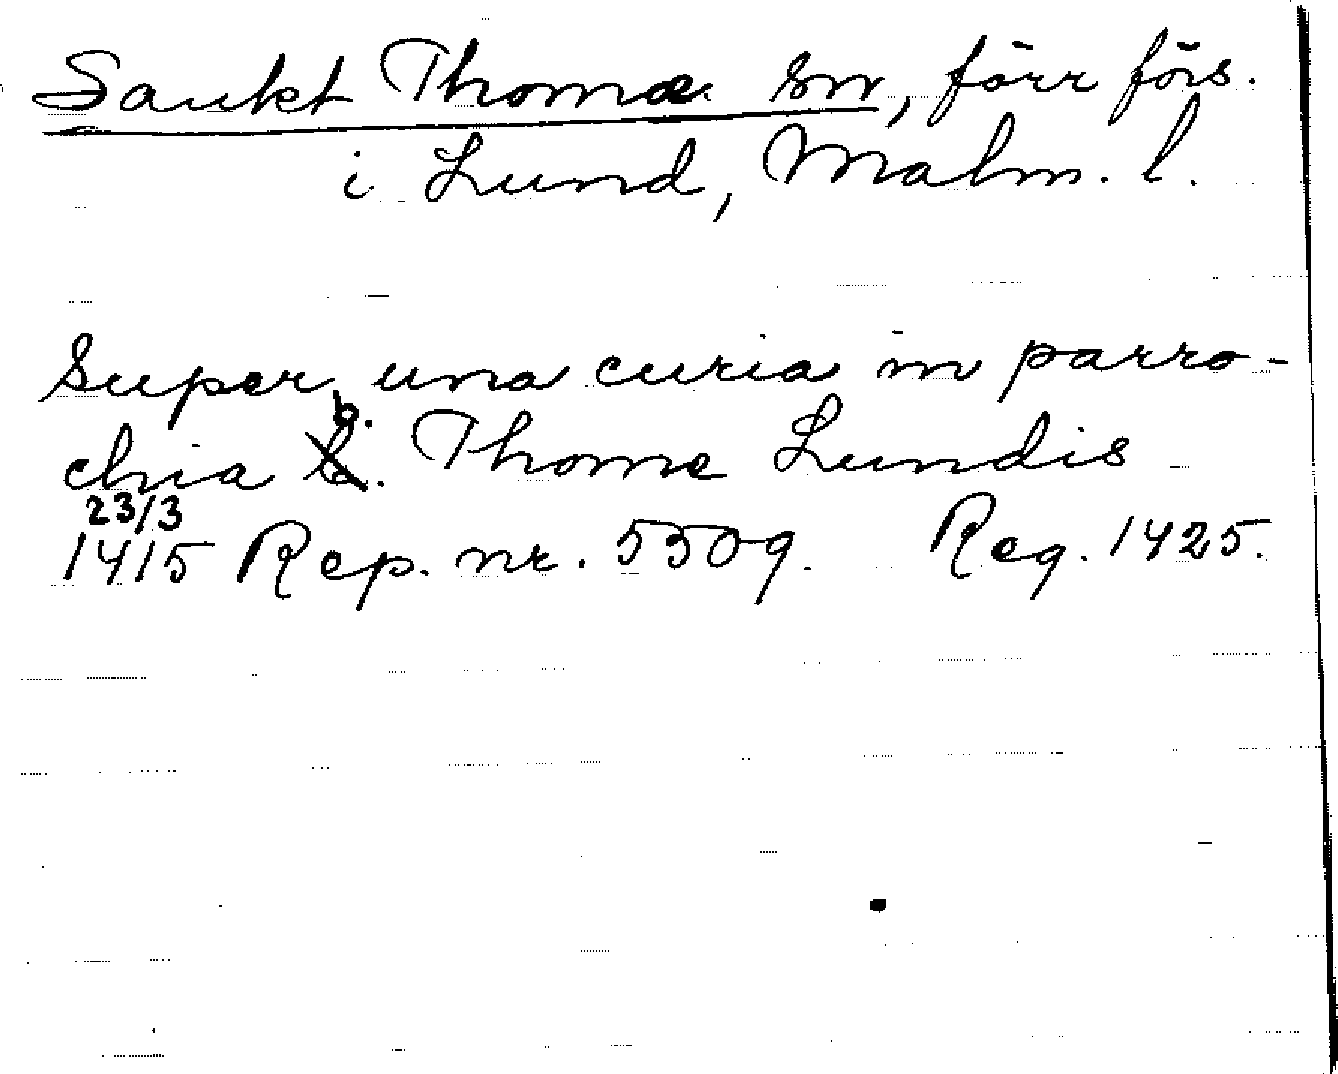 Sankt Thomæ sn, förr förs.
i Lund, Malm. l.
Super una curia in parro-
chia b. Thome Lundis
23/3
1415 Rep. nr. 5509. Reg. 1425.